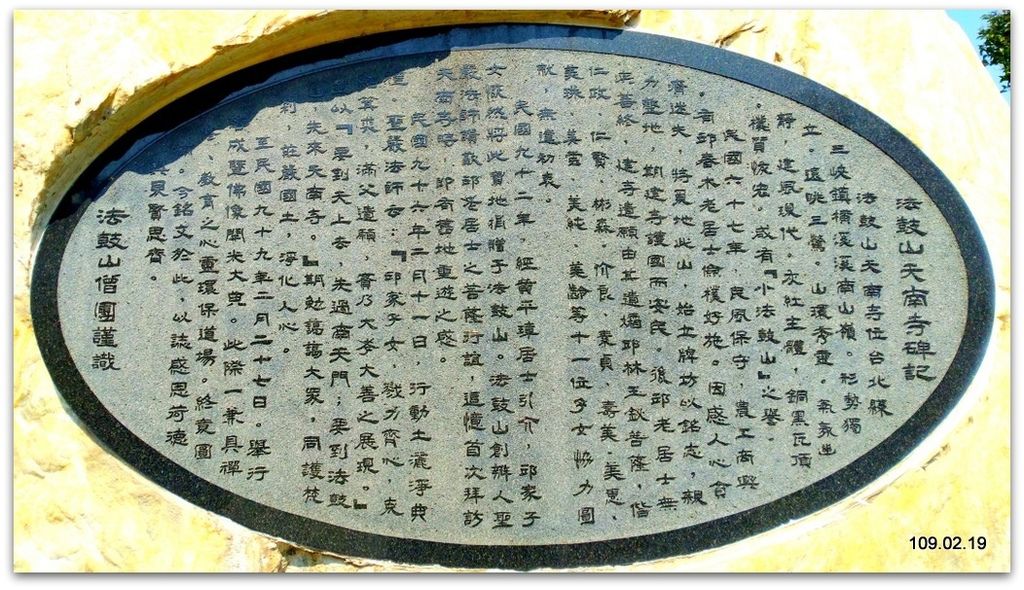 法鼓山天南寺碑記
法鼓山天南寺位台北縣
三峽鎮橫溪溪南山嶺。形勢獨
立。遠眺三鶯。山環秀靈。氣氛岑
靜,建風現代。灰紅主體,銅黑瓦頂
。樸質恢宏。或有『小法鼓山』之譽。
民國六十七年,民風保守,農工商興
。有邱春木老居士儉樸好施。因感人心貪
瀆迷失,特覓地此山,始立牌坊以銘志,親
力墾地,期建寺護國而安民。後邱老居士無
疾善終,建寺遺願由其遺孀邱林玉釵菩薩,偕
仁政、仁賢、彬森、介良、素貞、喜美、美惠、
美珠、美雲、美純、美齡等十一位子女協力圖
献,無違初衷。
民國九十二年,經黃平璋居士引介,邱家子
女慨然將此寶地捐贈予法鼓山。法鼓山創辦人聖
嚴法師讚歎邱老居士之菩薩行誼,追憶首次拜訪
天南寺時,即有舊地重遊之感。
民國九十六年二月十一日,行動土灑淨典
。聖嚴法師云:『邱家子女,戮力齊心,克
其災,滿父遺願,實乃大孝大善之展現。』
以『要到天上去,先過南天門;要到法鼓
,先來天南寺。』期勉諸大眾,同護梵
剎,莊嚴國土,淨化人心。
至民國九十九年二月二十七日。舉行
成暨佛像開光大典。此際一兼具禪
教育之心靈環保道場。終竟圓
。今銘文於此,以誌感恩荷德
見賢思齊。
法鼓山僧團謹識
109.02.19